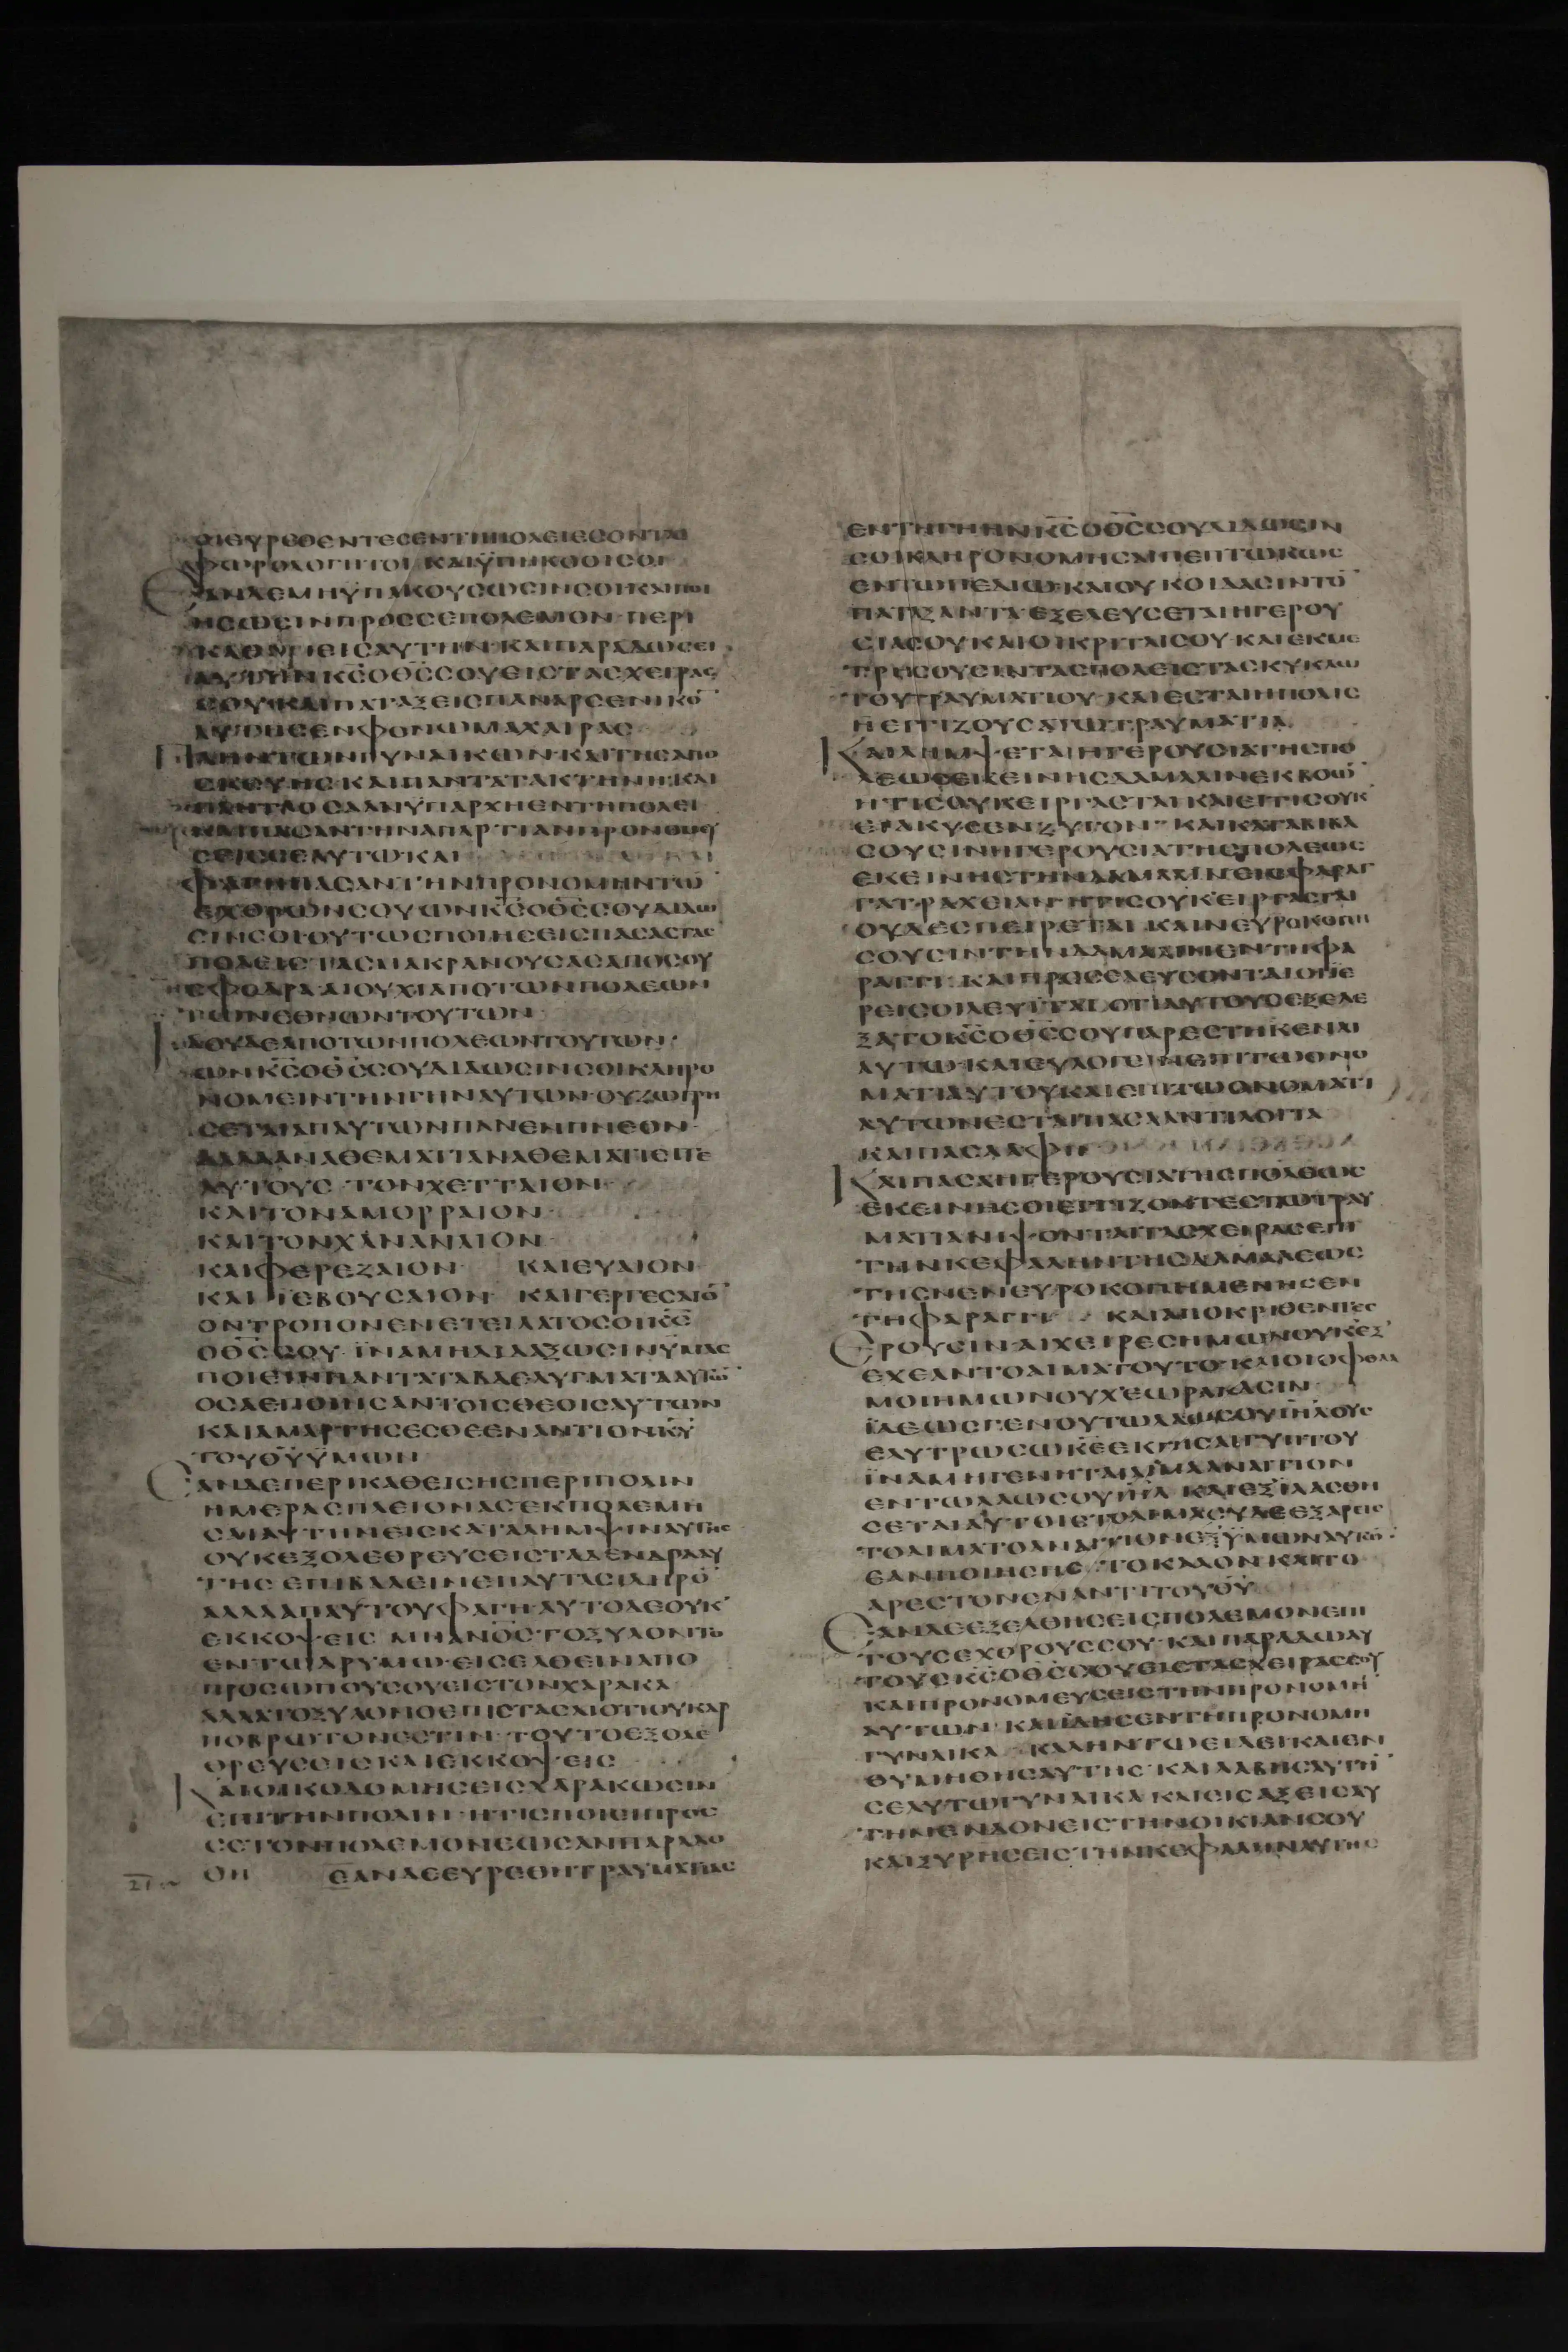 ΟΙΕΥΡΕΘΕΝΤΕΣΕΝΤΗΠΟΛΕΙΕΣΟΝΤΑΙ
ΦΩΡΟΛΟΓΗΤΟΙ ΚΑΙΫΠΗΚΟΟΙΣΟΙ
ΕΑΝΔΕΜΗΫΠΑΚΟΥΣΩΣΙΝΣΟΙΚΑΙΠΟΙ
ΗΣΩΣΙΝΠΡΟΣΣΕΠΟΛΕΜΟΝ ΠΕΡΙ
ΚΑΘΙΕΙΣΑΥΤΗΝ ΚΑΙΠΑΡΑΔΩΣΕΙ
ΑΥΤΗΝΚ̅Σ̅ΟΘ̅Σ̅ΣΟΥΕΙΣΤΑΣΧΕΙΡΑΣ
ΣΟΥΚΑΙΠΑΤΑΞΕΙΣΠΑΝΑΡΣΕΝΙΚΟ̅
ΑΥΤΗΣΕΝΦΟΝΩΜΑΧΑΙΡΑΣ
ΠΛΗΝΤΩΝΓΥΝΑΙΚΩΝ ΚΑΙΤΗΣΑΠΟ
ΣΚΕΥΗΣ ΚΑΙΠΑΝΤΑΤΑΚΤΗΝΗ ΚΑΙ
ΠΑΝΤΑΟΣΑΑΝΫΠΑΡΧΗΕΝΤΗΠΟΛΕΙ
ΚΑΙΠΑΣΑΝΤΗΝΑΠΑΡΤΙΑΝΠΡΟΝΟΜΕΥ
ΣΕΙΣΣΕΑΥΤΩ ΚΑΙ
ΦΑΓΗΠΑΣΑΝΤΗΝΠΡΟΝΟΜΗΝΤΩ̅
ΕΧΘΡΩΝΣΟΥΩΝΚ̅Σ̅ΟΘ̅Σ̅ΣΟΥΔΙΔΩ
ΣΙΝΣΟΙ ΟΥΤΩΣΠΟΙΗΣΕΙΣΠΑΣΑΣΤΑΣ
ΠΟΛΕΙΣΤΑΣΜΑΚΡΑΝΟΥΣΑΣΑΠΟΣΟΥ
ΣΦΟΔΡΑ ΑΙΟΥΧΙΑΠΟΤΩΝΠΟΛΕΩΝ
ΤΩΝΕΘΝΩΝΤΟΥΤΩΝ
ΙΔΟΥΔΕΑΠΟΤΩΝΠΟΛΕΩΝΤΟΥΤΩΝ
ΩΝΚ̅Σ̅ΟΘ̅Σ̅ΣΟΥΔΙΔΩΣΙΝΣΟΙΚΛΗΡΟ
ΝΟΜΕΙΝΤΗΝΓΗΝΑΥΤΩΝ ΟΥΖΩΓΡΗ
ΣΕΤΑΙΑΠΑΥΤΩΝΠΑΝΕΜΠΝΕΟΝ
ΑΛΛΑΑΝΑΘΕΜΑΤΙΑΝΑΘΕΜΑΤΙΕΙΤΕ
ΑΥΤΟΥΣ ΤΟΝΧΕΤΤΑΙΟΝ
ΚΑΙΤΟΝΑΜΟΡΡΑΙΟΝ
ΚΑΙΤΟΝΧΑΝΑΝΑΙΟΝ
ΚΑΙΦΕΡΕΖΑΙΟΝ ΚΑΙΕΥΑΙΟΝ
ΚΑΙ ΪΕΒΟΥΣΑΙΟΝ ΚΑΙΓΕΡΓΕΣΑΙΟ̅
ΟΝΤΡΟΠΟΝΕΝΕΤΕΙΛΑΤΟΣΟΙΚ̅Σ̅
ΟΘ̅Σ̅ΣΟΥ ΪΝΑΜΗΔΙΔΑΞΩΣΙΝΫΜΑΣ
ΠΟΙΕΙΝΠΑΝΤΑΤΑΒΔΕΛΥΓΜΑΤΑΑΥΤΩ̅
ΟΣΑΕΠΟΙΗΣΑΝΤΟΙΣΘΕΟΙΣΑΥΤΩΝ
ΚΑΙΑΜΑΡΤΗΣΕΣΘΕΕΝΑΝΤΙΟΝΚ̅Υ̅
ΤΟΥΘ̅Υ̅ΫΜΩΝ
ΕΑΝΔΕΠΕΡΙΚΑΘΕΙΣΗΣΠΕΡΙΠΟΛΙΝ
ΗΜΕΡΑΣΠΛΕΙΟΝΑΣ ΕΚΠΟΛΕΜΗ
ΣΑΙΑΥΤΗΝΕΙΣΚΑΤΑΛΗΜΨΙΝΑΥΤΗΣ
ΟΥΚΕΞΟΛΕΘΡΕΥΣΕΙΣΤΑΔΕΝΔΡΑΑΥ
ΤΗΣ ΕΠΙΒΑΛΕΙΝΕΠΑΥΤΑΣΙΔΗΡΟ̅
ΑΛΛΑΑΠΑΥΤΟΥΦΑΓΗΑΥΤΟΔΕΟΥΚ
ΕΚΚΟΨΕΙΣ ΜΗΑΝΟΣΤΟΞΥΛΟΝΤΟ
ΕΝΤΩΔΡΥΜΩ ΕΙΣΕΛΘΕΙΝΑΠΟ
ΠΡΟΣΩΠΟΥΣΟΥΕΙΣΤΟΝΧΑΡΑΚΑ
ΑΛΛΑΤΟΞΥΛΟΝΟΕΠΙΣΤΑΣΑΙΟΤΙΟΥΚΑΡ
ΠΟΒΡΩΤΟΝΕΣΤΙΝ ΤΟΥΤΟΕΞΟΛΕ
ΘΡΕΥΣΕΙΣΚΑΙΕΚΚΟΨΕΙΣ
ΚΑΙΟΙΚΟΔΟΜΗΣΕΙΣΧΑΡΑΚΩΣΙΝ
ΕΠΙΤΗΝΠΟΛΙΝ ΗΤΙΣΠΟΙΕΙΠΡΟΣ
ΣΕΤΟΝΠΟΛΕΜΟΝΕΩΣΑΝΠΑΡΑΔΟ
ΘΗ ΕΑΝΔΕΕΥΡΕΘΗΤΡΑΥΜΑΤΙΑΣ
ΕΝΤΗΓΗΗΝΚ̅Σ̅ΟΘ̅Σ̅ΣΟΥΔΙΔΩΣΙΝ
ΣΟΙΚΛΗΡΟΝΟΜΗΣΑΙΠΕΠΤΩΚΩΣ
ΕΝΤΩΠΕΔΙΩ ΚΑΙΟΥΚΟΙΔΑΣΙΝΤΟ̅
ΠΑΤΑΞΑΝΤΑ ΕΞΕΛΕΥΣΕΤΑΙΗΓΕΡΟΥ
ΣΙΑΣΟΥΚΑΙΟΙΚΡΙΤΑΙΣΟΥ ΚΑΙΕΚΜΕ
ΤΡΗΣΟΥΣΙΝΤΑΣΠΟΛΕΙΣΤΑΣΚΥΚΛΩ
ΤΟΥΤΡΑΥΜΑΤΙΟΥ ΚΑΙΕΣΤΑΙΗΠΟΛΙΣ
ΗΕΓΓΙΖΟΥΣΑΤΩΤΡΑΥΜΑΤΙΑ
ΚΑΙΛΗΜΨΕΤΑΙΗΓΕΡΟΥΣΙΑΤΗΣΠΟ
ΛΕΩΣΕΚΕΙΝΗΣΔΑΜΑΛΙΝΕΚΒΟΩ̅
ΗΤΙΣΟΥΚΕΙΡΓΑΣΤΑΙ ΚΑΙΗΤΙΣΟΥΚ
ΕΙΛΚΥΣΕΝΖΥΓΟΝ ΚΑΙΚΑΤΑΒΙΒΑ
ΣΟΥΣΙΝΗΓΕΡΟΥΣΙΑΤΗΣΠΟΛΕΩΣ
ΕΚΕΙΝΗΣΤΗΝΔΑΜΑΛΙΝΕΙΣΦΑΡΑΓ
ΓΑΤΡΑΧΕΙΑΝ ΗΤΙΣΟΥΚΕΙΡΓΑΣΤΑΙ
ΟΥΔΕΣΠΕΙΡΕΤΑΙ ΚΑΙΝΕΥΡΟΚΟΠΗ
ΣΟΥΣΙΝΤΗΝΔΑΜΑΛΙΝΕΝΤΗΦΑ
ΡΑΓΓΙ ΚΑΙΠΡΟΣΕΛΕΥΣΟΝΤΑΙΟΙΪΕ
ΡΕΙΣΟΙΛΕΥΪΤΑΙ ΟΤΙΑΥΤΟΥΣΕΞΕΛΕ
ΞΑΤΟΚ̅Σ̅ΟΘ̅Σ̅ΣΟΥΠΑΡΕΣΤΗΚΕΝΑΙ
ΑΥΤΩ ΚΑΙΕΥΛΟΓΕΙΝΕΠΙΤΩΟΝΟ
ΜΑΤΙΑΥΤΟΥΚΑΙΕΠΙΤΩΟΝΟΜΑΤΙ
ΑΥΤΩΝΕΣΤΑΙΠΑΣΑΑΝΤΙΛΟΓΙΑ
ΚΑΙΠΑΣΑΑΦΗ
ΚΑΙΠΑΣΑΗΓΕΡΟΥΣΙΑΤΗΣΠΟΛΕΩΣ
ΕΚΕΙΝΗΣΟΙΕΓΓΙΖΟΝΤΕΣΤΩΤΡΑΥ
ΜΑΤΙΑΝΙΨΟΝΤΑΙΤΑΣΧΕΙΡΑΣΕΠΙ
ΤΗΝΚΕΦΑΛΗΝΤΗΣΔΑΜΑΛΕΩΣ
ΤΗΣΝΕΝΕΥΡΟΚΟΠΗΜΕΝΗΣΕΝ
ΤΗΦΑΡΑΓΓΙ ΚΑΙΑΠΟΚΡΙΘΕΝΤΕΣ
ΕΡΟΥΣΙΝ ΑΙΧΕΙΡΕΣΗΜΩΝΟΥΚΕΞ
ΕΧΕΑΝΤΟΑΙΜΑΤΟΥΤΟ ΚΑΙΟΙΟΦΘΑΛ
ΜΟΙΗΜΩΝΟΥΧΕΩΡΑΚΑΣΙΝ
ΪΛΕΩΣΓΕΝΟΥΤΩΛΑΩΣΟΥΙ̅Η̅Λ̅ΟΥΣ
ΕΛΥΤΡΩΣΩΚ̅Ε̅ΕΚΓΗΣΑΙΓΥΠΤΟΥ
ΪΝΑΜΗΓΕΝΗΤΑΙΑΙΜΑΑΝΑΙΤΙΟΝ
ΕΝΤΩΛΑΩΣΟΥΙ̅Η̅Λ̅ ΚΑΙΕΞΙΛΑΣΘΗ
ΣΕΤΑΙΑΥΤΟΙΣΤΟΑΙΜΑΣΥΔΕΕΞΑΡΕΙΣ
ΤΟΑΙΜΑΤΟΑΝΑΙΤΙΟΝΕΞΫΜΩΝΑΥΤΩ̅
ΕΑΝΠΟΙΗΣΗΣ ΤΟΚΑΛΟΝΚΑΙΤΟ
ΑΡΕΣΤΟΝΕΝΑΝΤΙΤΟΥΘ̅Υ̅
ΕΑΝΔΕΕΞΕΛΘΗΣΕΙΣΠΟΛΕΜΟΝΕΠΙ
ΤΟΥΣΕΧΘΡΟΥΣΣΟΥ ΚΑΙΠΑΡΑΔΩΑΥ
ΤΟΥΣΚ̅Σ̅ΟΘ̅Σ̅ΣΟΥΕΙΣΤΑΣΧΕΙΡΑΣΣΟΥ
ΚΑΙΠΡΟΝΟΜΕΥΣΕΙΣΤΗΝΠΡΟΝΟΜΗ̅
ΑΥΤΩΝ ΚΑΙΪΔΗΣΕΝΤΗΠΡΟΝΟΜΗ
ΓΥΝΑΙΚΑ ΚΑΛΗΝΤΩΕΙΔΕΙΚΑΙΕΝ
ΘΥΜΗΘΗΣΑΥΤΗΣ ΚΑΙΛΑΒΗΣΑΥΤΗ̅
ΣΕΑΥΤΩΓΥΝΑΙΚΑ ΚΑΙΕΙΣΑΞΕΙΣΑΥ
ΤΗΝΕΝΔΟΝΕΙΣΤΗΝΟΙΚΙΑΝΣΟΥ
ΚΑΙΞΥΡΗΣΕΙΣΤΗΝΚΕΦΑΛΗΝΑΥΤΗΣ